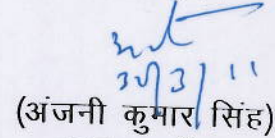 30/3/11
(अंजनी कुमार सिंह)